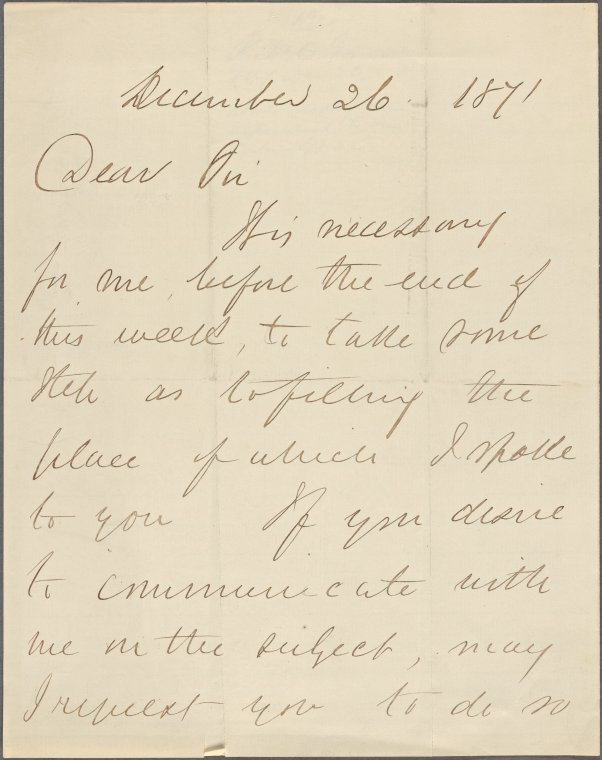 December 26. 1871
Dear Sir
It is necessary
for me, before the end of
this week, to take some
step as to filling the
place of which I spoke
to you If you desire
to communicate with
me on the subject, may
I request you to do so